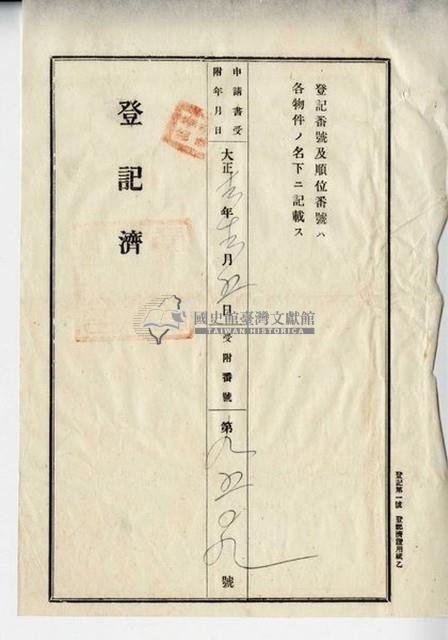 登記番號及順位番號ハ
各物件ノ名下ニ記載ス
申請書受
附年月日
大正 年 月五日
受附番號
第九五〇九號
登記濟
登記第一號 登記濟證用紙乙
國史館臺灣文獻館
TAIWAN HISTORICA